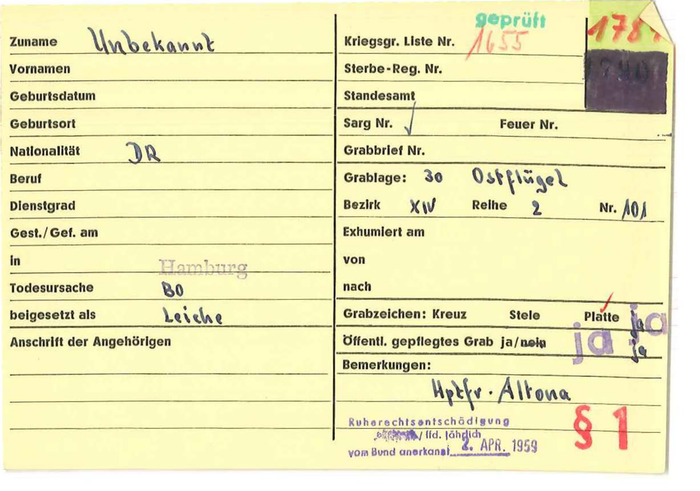 Zuname Unbekannt
Vornamen
Geburtsdatum
Geburtsort
Nationalität DR
Beruf
Dienstgrad
Gest./Gef. am
in Hamburg
Todesursache BO
beigesetzt als Leiche
Anschrift der Angehörigen
geprüft
Kriegsgr. Liste Nr. 1655
Sterbe-Reg. Nr.
Standesamt
Sarg Nr. Feuer Nr.
Grabbrief Nr.
Grablage: 30 Ostflügel
Bezirk XIV Reihe 2 Nr. 101
Exhumiert am
von
nach
Grabzeichen: Kreuz Stele Platte
Öffentl. gepflegtes Grab ja/nein ja ja
Bemerkungen:
Hptfr. Altona
Ruherechtsentschädigung
/ lfd. jährlich
vom Bund anerkannt 2. APR. 1959
§ 1